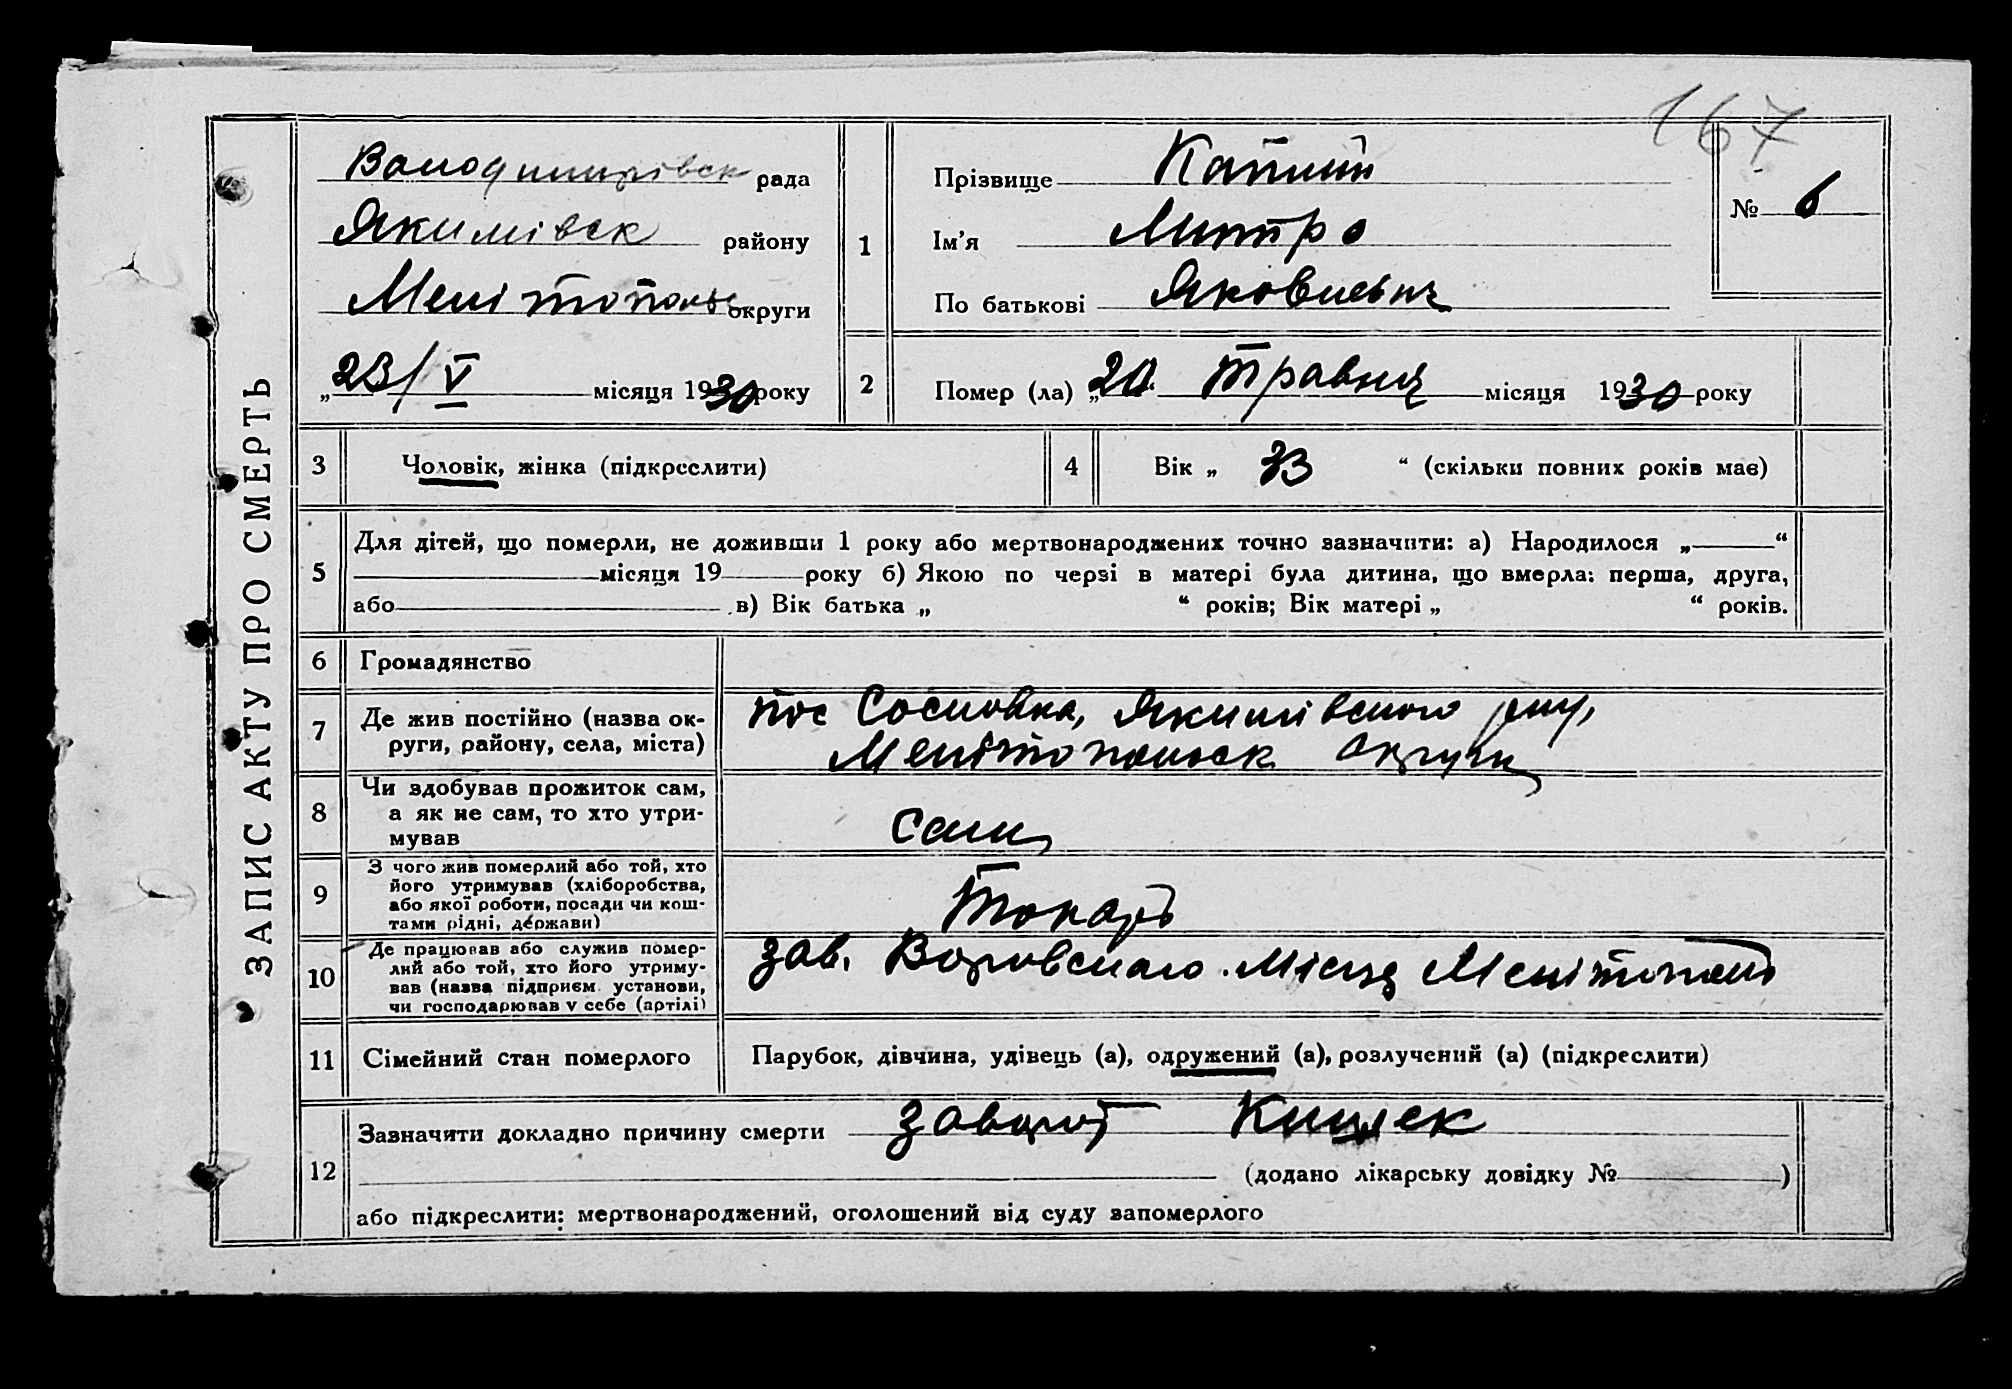 167
ЗАПИС АКТУ ПРО СМЕРТЬ
Володимирівськ рада
Якимівськ району
Мелітопольс округи
„23/V місяця 1930 року
1
Прізвище
Ім’я Митро
По батькові Яковлевич
№ 6
2
Помер (ла) „20 травня місяця 1930 року
3
Чоловік, жінка (підкреслити)
4
Вік „ 33 “ (скільки повних років має)
5
Для дітей, що померли, не доживши 1 року або мертвонароджених точно зазначити: а) Народилося „ “
місяця 19 року б) Якою по черзі в матері була дитина, що вмерла: перша, друга,
або в) Вік батька „ “ років; Вік матері „ “ років.
6
Громадянство
7
Де жив постійно (назва ок-
руги, району, села, міста)
пос Сосновка, Якимівського р-ну,
Мелітопольськ округи
8
Чи здобував прожиток сам,
а як не сам, то хто утри-
мував
сам
9
З чого жив померлий або той, хто
його утримував (хліборобства,
або якої роботи, посади чи кош-
тами рідні, держави)
Токарь
10
Де працював або служив помер-
лий або той, хто його утриму-
вав (назва підприєм. установи,
чи господарював у себе (артілі)
зав. Воровского Місця Мелітополь
11
Сімейний стан померлого
Парубок, дівчина, удівець (а), одружений (а), розлучений (а) (підкреслити)
12
Зазначити докладно причину смерти заворот Кишек
(додано лікарську довідку № )
або підкреслити: мертвонароджений, оголошений від суду запомерлого